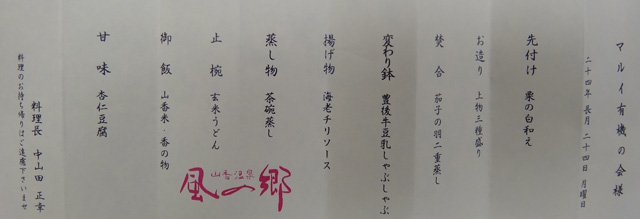 マルイ有機の会様
二十四年 長月 二十四日 月曜日
先付け 栗の白和え
お造り 上物三種盛り
焚合 茄子の羽二重蒸し
変わり鉢 豊後牛豆乳しゃぶしゃぶ
揚げ物 海老チリソース
蒸し物 茶碗蒸し
止椀 玄米うどん
御飯 山香米・香の物
甘味 杏仁豆腐
山香温泉
風の郷
料理長 中山田 正幸
料理のお持ち帰りはご遠慮下さいませ